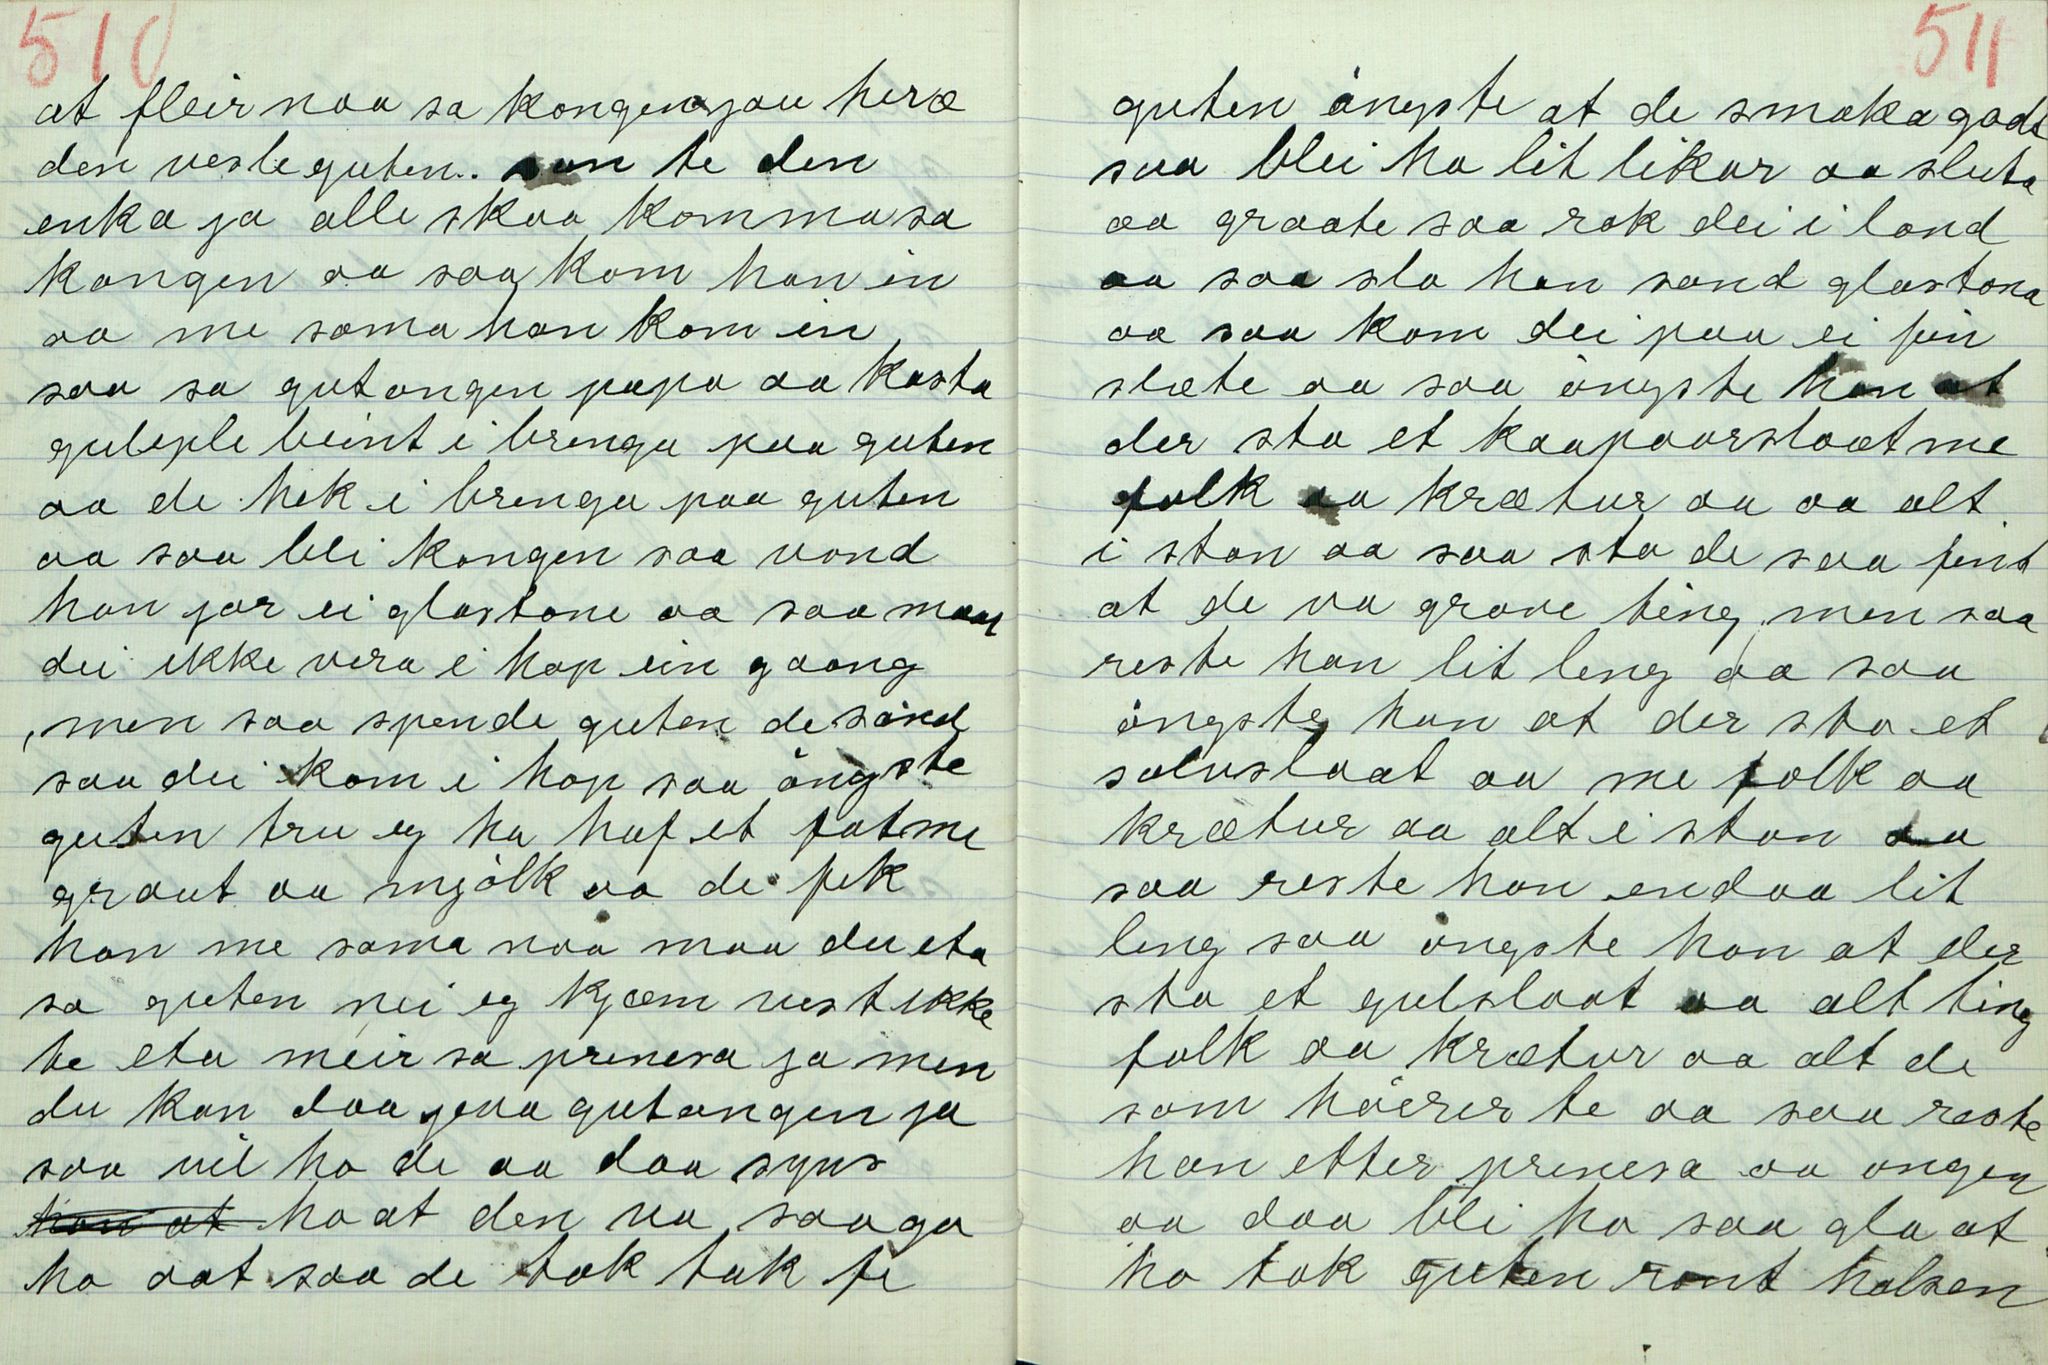 510
at fleir naa sa kongen jau heræ
den vesle guten. son te den
enka ja alle skaa komma sa
kongen aa saa kom han in
aa me sama han kom in
saa sa gutongen papa aa kasta
guleple beint i brenga paa guten
aa de hek i brenga paa guten
aa saa blei kongen saa vond
han jor ei glastone aa saa maa
dei ikke vera i hop ein gaang
, men saa spende guten de sönd
saa dei kom i hop saa öngste
guten tru eg ha haf et fat me
graut aa mjölk aa de fek
han me sama naa maa du eta
sa guten nei eg kjæm vest ikke
te eta meir sa prinesa ja men
du kan daa jeva gutongen ja
saa vil ho de aa daa syns
ho at den va saa ga
ho aat saa de tak tak fe
511
guten öngste at de smaka godt
saa blei ho lit likar aa sluta
aa graate saa rak dei i land
aa saa slo han sond glastona
aa saa kom dei paa ei fin
slæte aa saa öngste han at
der sto et kaaparslaat me
folk aa krætur aa aa alt
i stan aa saa sto de saa fint
at de va grove ting, men saa
reste han lit leng aa saa
öngste han at der sto et
sølvslaat aa me folk aa
krætur aa alt i stan aa
saa reste han endaa lit
leng saa öngste han at der
sto et gulslaat aa alt ting
folk aa krætur aa alt de
som höerer te aa saa reste
han etter prinesa aa ongen
aa daa blei ho saa gla at
ho tok guten ront halsen